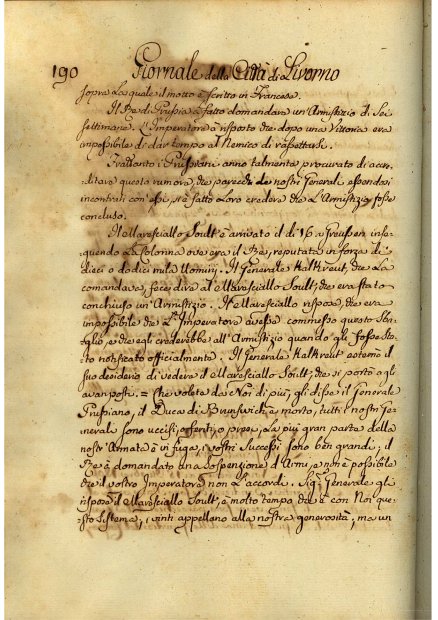 190 Giornale della Città di Livorno
sopra La quale il motto è scritto in Francese.
Il Re di Prussia à fatto domandare un'Armistizio di Sei
Settimane. L'Imperatore à risposto che dopo una Vittoria era
impossibile di dar tempo al Nemico di rassettarsi.
Frattanto i Prussiani anno talmente procurato di accre-
ditare questo rumore, che parecchi de nostri Generali essendosi
incontrati con essi, si è fatto Loro credere che L'Armistizio fosse
concluso.
Il Maresciallo Soult è arrivato il dì 16 a Greussen inse-
guendo La Colonna ove era il Re, reputata in forza di
dieci o dodici mila Uomini. Il Generale Kalkreut, che La
comandava, fece dire al Maresciallo Soult, che era stato
conchiuso un'Armistizio. Il Maresciallo rispose, che era
impossibile che L'Imperatore avesse commesso questo
e che egli crederebbe all'Armistizio quando gli fosse sta-
to notificato officialmente. Il Generale Kalkreut esternò il
suo desiderio di vedere il Maresciallo Soult, che si portò agli
avan posti. = Che volete da Noi di più, gli disse il Generale
Prussiano, il Duca di Brunswich è morto, tutti i nostri Ge-
nerali sono uccisi, feriti, o presi, La più gran parte della
nostr'Armata è in fuga, i vostri Successi sono ben grandi, il
Re à domandato una Sospensione d'Armi, e non è possibile
che il vostro Imperatore non L'accordi. Sig.r Generale gli
rispose il Maresciallo Soult, è molto tempo che è con Noi que-
sto sistema, i vinti appellano alla nostra generosità, ma un